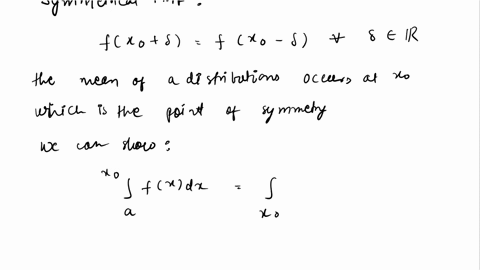 Symmetrical PMF:
f(x0 + δ) = f (x0 - δ) ∀ δ ∈ ℝ
the mean of a distributions occurs at x0
which is the point of symmetry
we can show:
x0 ∫ a f(x) dx = ∫ x0